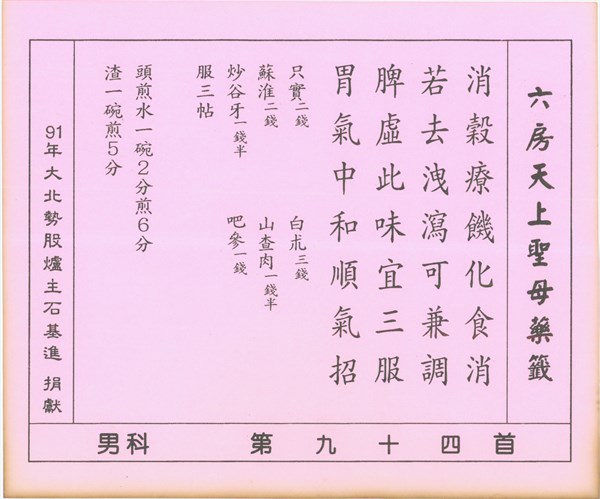 六房天上聖母藥籤
消穀療饑化食消
若去洩瀉可兼調
脾虛此味宜三服
胃氣中和順氣招
只實二錢 白朮三錢
蘇淮二錢 山查肉一錢半
炒谷牙一錢半 吧參一錢
服三帖
頭煎水一碗2分煎6分
渣一碗煎5分
91年大北勢股爐主石基進 捐獻
男科 第九十四首